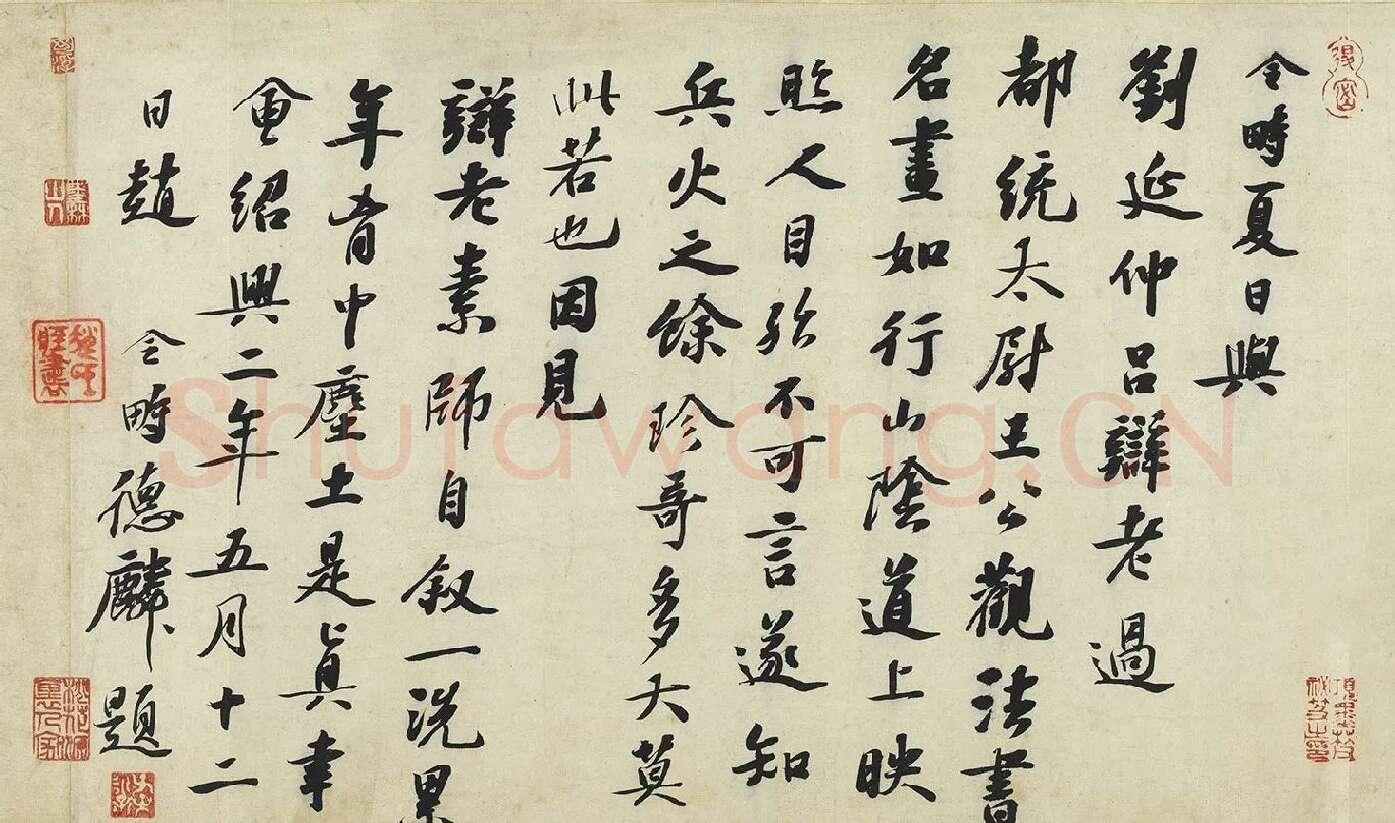 令畤夏日與
劉延仲吕辯老過
都統太尉王公觀法書
名畫如行山陰道上映
照人目殆不可言遂知
兵火之餘珍哥多大莫
此若也因見
辯老素師自叙一洗累
年胷中塵土是真幸
會紹興二年五月十二
日趙令畤德麟題
Shufawang.CN